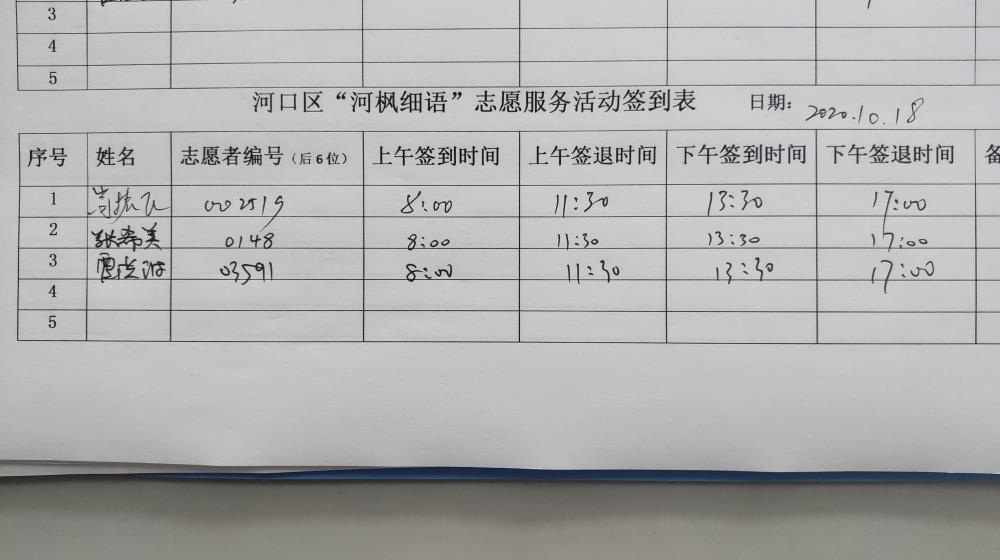 3
4
5
河口区“河枫细语”志愿服务活动签到表 日期: 2020.10.18
序号 姓名 志愿者编号(后6位) 上午签到时间 上午签退时间 下午签到时间 下午签退时间 备
1 002519 8:00 11:30 13:30 17:00
2 张希美 0148 8:00 11:30 13:30 17:00
3 03591 8:00 11:30 13:30 17:00
4
5